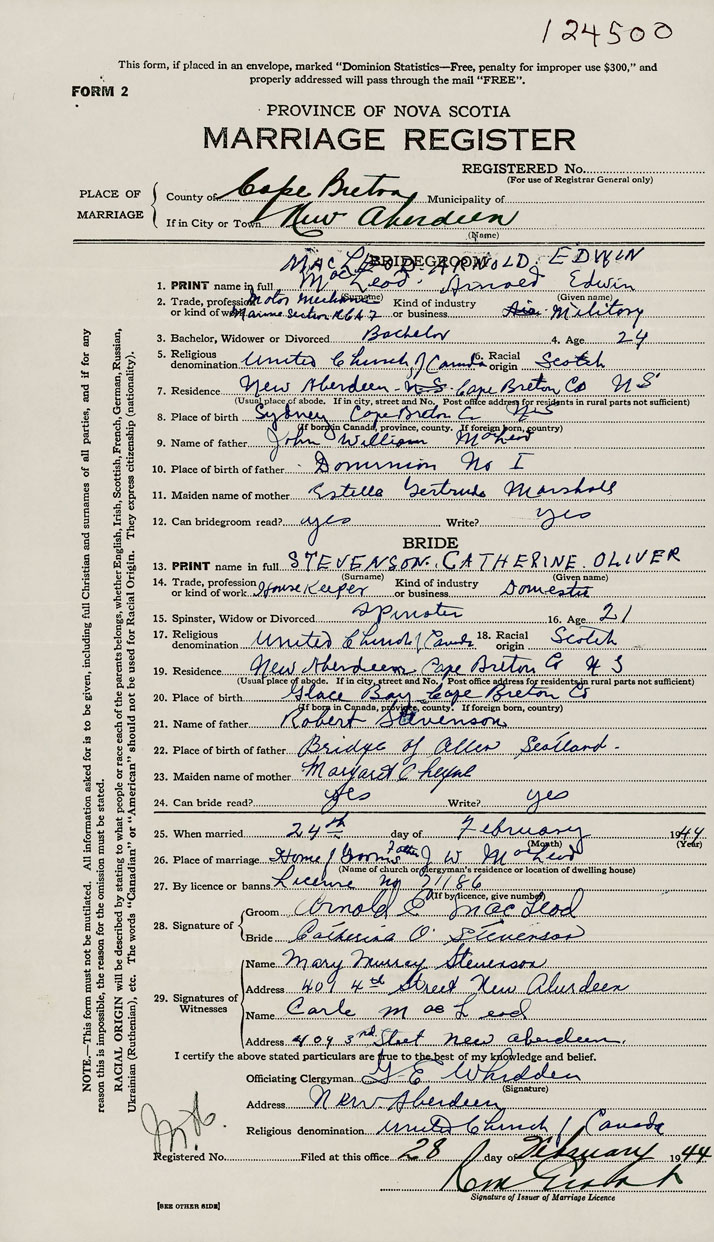 124500
This form, if placed in an envelope, marked "Dominion Statistics—Free, penalty for improper use $300," and
properly addressed will pass through the mail "FREE".
FORM 2
PROVINCE OF NOVA SCOTIA
MARRIAGE REGISTER
REGISTERED No.
(For use of Registrar General only)
PLACE OF MARRIAGE
County of Cape Breton Municipality of
If in City or Town New Aberdeen
(Name)
BRIDEGROOM
MACLEOD. ARNOLD. EDWIN
1. PRINT name in full MacLeod. Arnold Edwin
(Surname) (Given name)
2. Trade, profession or kind of work Motor Mechanic Marine Section Kind of industry or business Military
3. Bachelor, Widower or Divorced Bachelor 4. Age 24
5. Religious denomination United Church of Canada 6. Racial origin Scotch
7. Residence New Aberdeen N.S. Cape Breton Co N S
(Usual place of abode. If in city, street and No. Post office address for residents in rural parts not sufficient)
8. Place of birth Sydney Cape Breton C NS
(If born in Canada, province, county. If foreign born, country)
9. Name of father John William McLeod
10. Place of birth of father Dominion No I
11. Maiden name of mother Estella Gertrude Marshall
12. Can bridegroom read? yes Write? yes
BRIDE
13. PRINT name in full STEVENSON. CATHERINE. OLIVER
(Surname) (Given name)
14. Trade, profession or kind of work House Keeper Kind of industry or business Domestic
15. Spinster, Widow or Divorced Spinster 16. Age 21
17. Religious denomination United Church of Canada 18. Racial origin Scotch
19. Residence New Aberdeen Cape Breton Co N S
(Usual place of abode. If in city, street and No. Post office address for residents in rural parts not sufficient)
20. Place of birth Glace Bay Cape Breton Co
(If born in Canada, province, county. If foreign born, country)
21. Name of father Robert Stevenson
22. Place of birth of father Bridge of Allen Scotland.
23. Maiden name of mother Margaret
24. Can bride read? yes Write? yes
25. When married 24th day of February 1944
(Month) (Year)
26. Place of marriage Home of Grooms Father J W MacLeod
(Name of church or clergyman's residence or location of dwelling house)
27. By licence or banns License no 71186
(If by licence, give number)
28. Signature of
Groom Arnold E MacLeod
Bride Catherine O. Stevenson
29. Signatures of Witnesses
Name Mary Murray Stevenson
Address 401 4th Street New Aberdeen
Name Carle MacLeod
Address 409 3rd Street New Aberdeen.
I certify the above stated particulars are true to the best of my knowledge and belief.
Officiating Clergyman G E Whidden
(Signature)
Address New Aberdeen
Religious denomination United Church of Canada
Registered No. Filed at this office 28 day of February 1944
Signature of Issuer of Marriage Licence
[SEE OTHER SIDE]
NOTE.—This form must not be mutilated. All information asked for is to be given, including full Christian and surnames of all parties, and if for any
reason this is impossible, the reason for the omission must be stated.
RACIAL ORIGIN will be described by stating to what people or race each of the parents belongs, whether English, Irish, Scottish, French, German, Russian,
Ukrainian (Ruthenian), etc. The words "Canadian" or "American" should not be used for Racial Origin. They express citizenship (nationality).